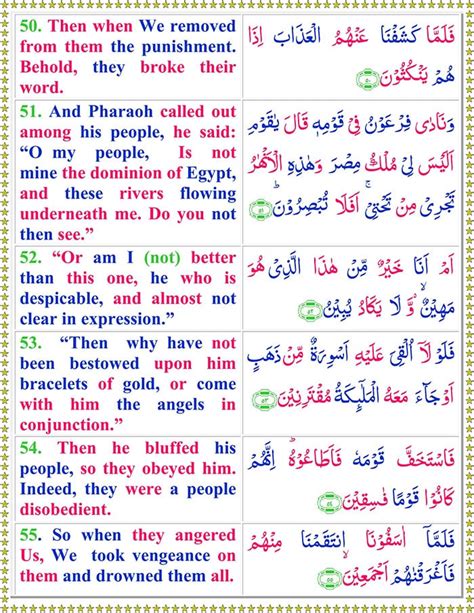 50. Then when We removed
from them the punishment.
Behold, they broke their
word.
فَلَمَّا كَشَفْنَا عَنْهُمُ الْعَذَابَ اِذَا
هُمْ يَنْكُثُوْنَ ۝۵۰
51. And Pharaoh called out
among his people, he said:
“O my people, Is not
mine the dominion of Egypt,
and these rivers flowing
underneath me. Do you not
then see.”
وَنَادٰى فِرْعَوْنُ فِىْ قَوْمِهٖ قَالَ يٰقَوْمِ
اَلَيْسَ لِىْ مُلْكُ مِصْرَ وَهٰذِهِ الْاَنْهٰرُ
تَجْرِىْ مِنْ تَحْتِىْ ۚ اَفَلَا تُبْصِرُوْنَ ۝۵۱
52. “Or am I (not) better
than this one, he who is
despicable, and almost not
clear in expression.”
اَمْ اَنَا خَيْرٌ مِّنْ هٰذَا الَّذِىْ هُوَ
مَهِيْنٌ ۙ وَّ لَا يَكَادُ يُبِيْنُ ۝۵۲
53. “Then why have not
been bestowed upon him
bracelets of gold, or come
with him the angels in
conjunction.”
فَلَوْلَاۤ اُلْقِىَ عَلَيْهِ اَسْوِرَةٌ مِّنْ ذَهَبٍ
اَوْ جَآءَ مَعَهُ الْمَلٰٓئِكَةُ مُقْتَرِنِيْنَ ۝۵۳
54. Then he bluffed his
people, so they obeyed him.
Indeed, they were a people
disobedient.
فَاسْتَخَفَّ قَوْمَهٗ فَاَطَاعُوْهُ ؕ اِنَّهُمْ
كَانُوْا قَوْمًا فٰسِقِيْنَ ۝۵۴
55. So when they angered
Us, We took vengeance on
them and drowned them all.
فَلَمَّاۤ اٰسَفُوْنَا انْتَقَمْنَا مِنْهُمْ
فَاَغْرَقْنٰهُمْ اَجْمَعِيْنَ ۙ ۝۵۵